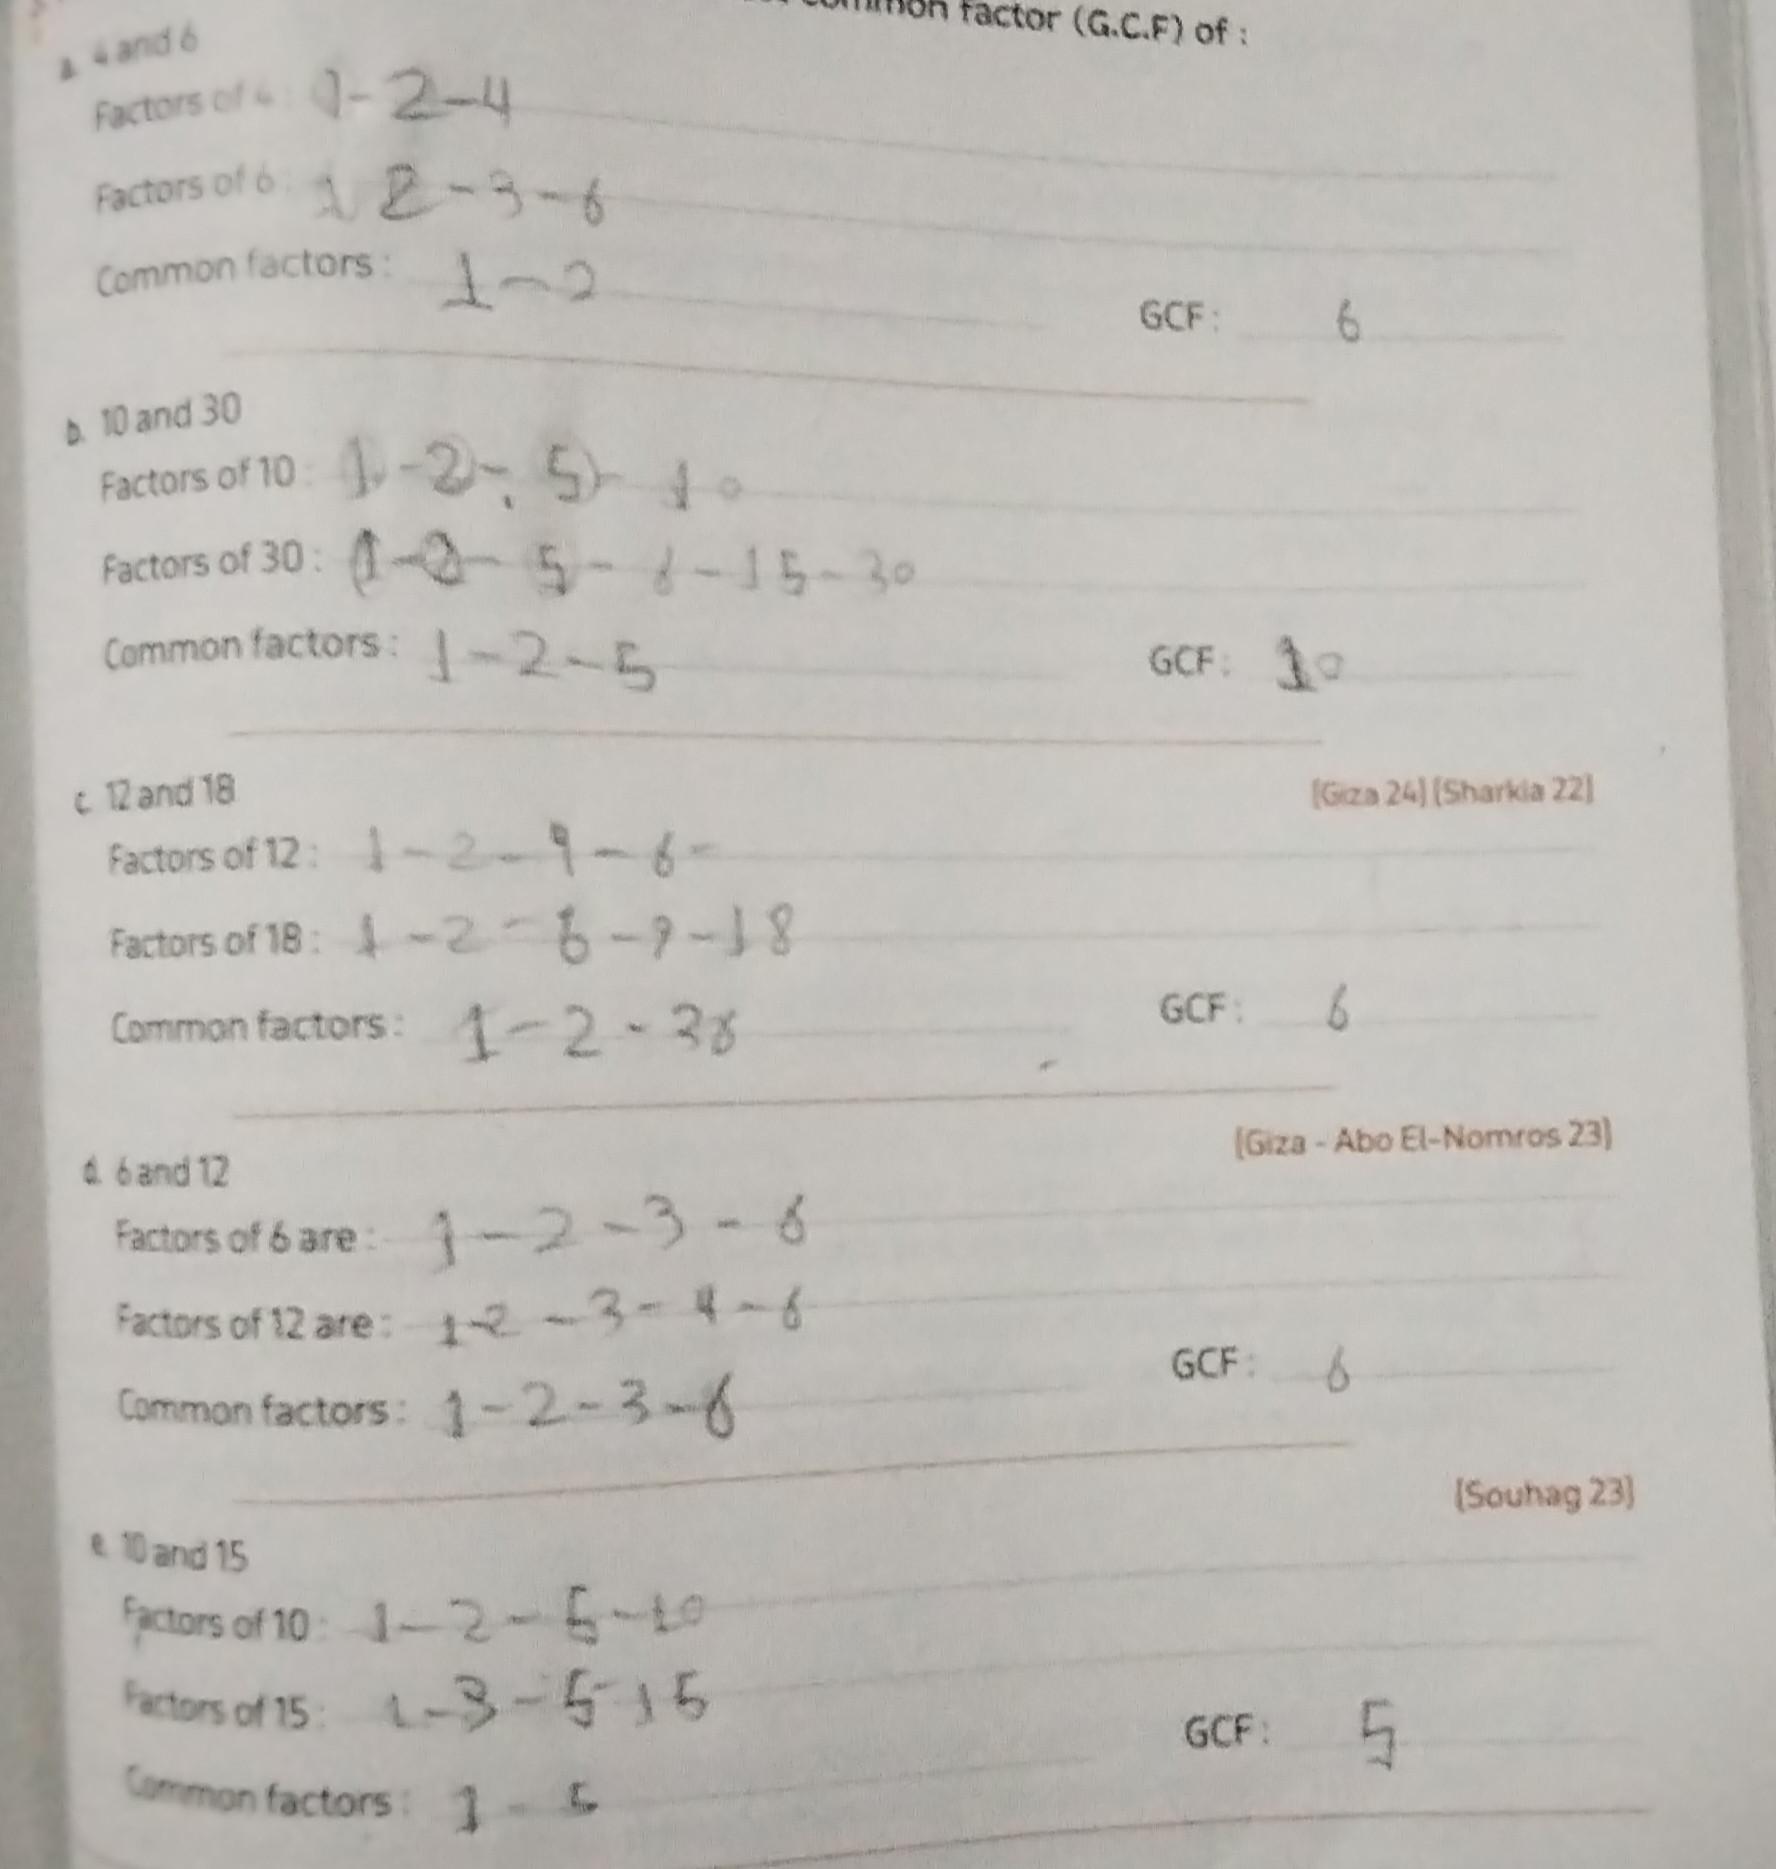 common factor (G.C.F) of :
a. 4 and 6
Factors of 4 : 1 - 2 - 4
Factors of 6 : 1 2 - 3 - 6
Common factors : 1 - 2
GCF : 6
b. 10 and 30
Factors of 10 : 1 - 2 - 5 - 10
Factors of 30 : 1 - 2 - 5 - 6 - 15 - 30
Common factors : 1 - 2 - 5
GCF : 10
c. 12 and 18
[Giza 24] [Sharkia 22]
Factors of 12 : 1 - 2 - 4 - 6 -
Factors of 18 : 1 - 2 - 6 - 9 - 18
Common factors : 1 - 2 - 36
GCF : 6
[Giza - Abo El-Nomros 23]
d. 6 and 12
Factors of 6 are : 1 - 2 - 3 - 6
Factors of 12 are : 1 - 2 - 3 - 4 - 6
Common factors : 1 - 2 - 3 - 6
GCF : 6
[Souhag 23]
e. 10 and 15
Factors of 10 : 1 - 2 - 5 - 10
Factors of 15 : 1 - 3 - 5 - 15
Common factors : 1 - 5
GCF : 5